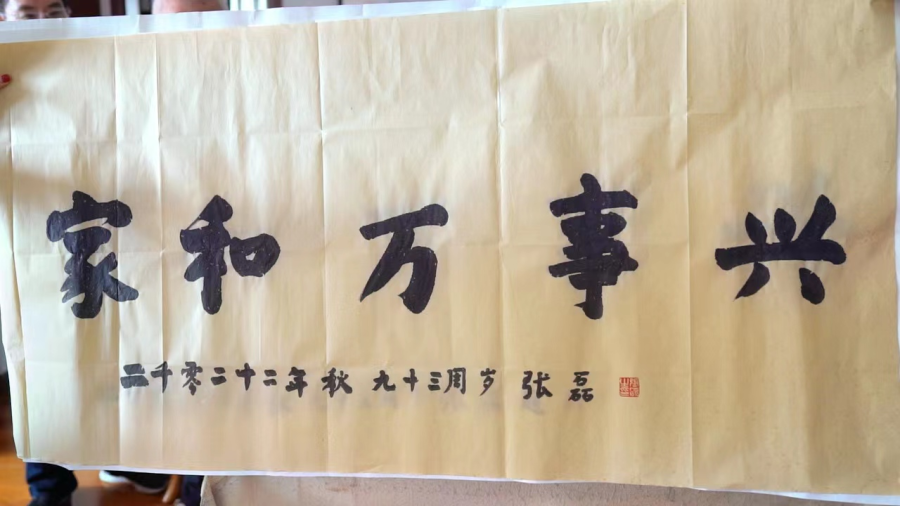 家和万事兴
二千零二十二年秋 九十三周岁 张磊